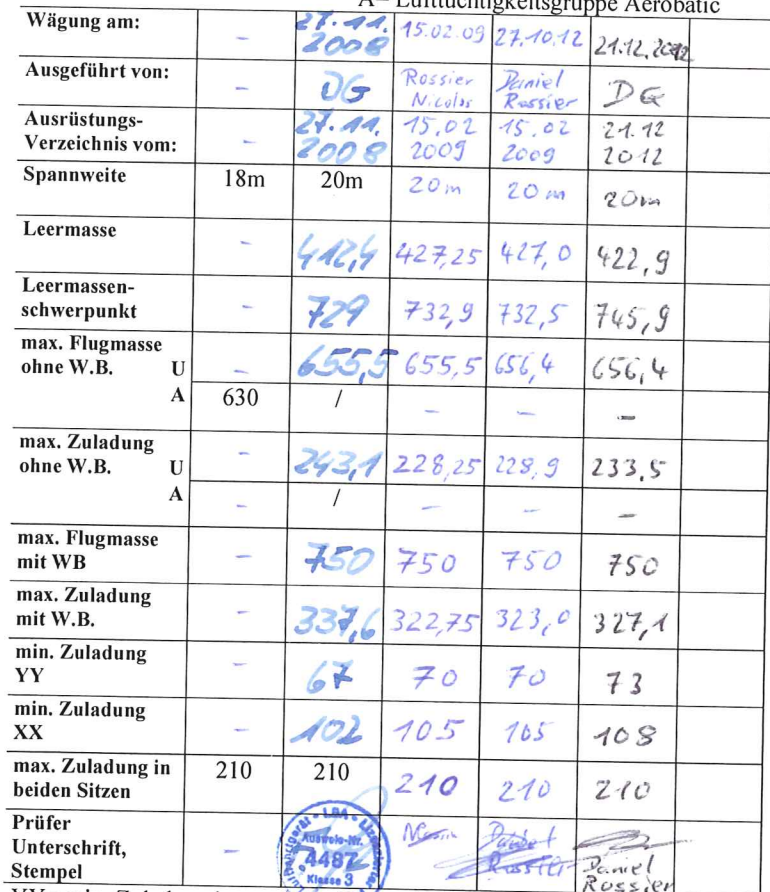 A= Lufttüchtigkeitsgruppe Aerobatic
Wägung am: - 27.11.2008 15.02.09 27.10.12 21.12.2012
Ausgeführt von: - DG Rossier Nicolas Daniel Rossier DG
Ausrüstungs-Verzeichnis vom: - 27.11.2008 15.02 2009 15.02 2009 21.12 2012
Spannweite 18m 20m 20m 20m 20m
Leermasse - 412,4 427,25 427,0 422,9
Leermassen-schwerpunkt - 729 732,9 732,5 745,9
max. Flugmasse ohne W.B. U - 655,5 655,5 656,4 656,4
A 630 / - - -
max. Zuladung ohne W.B. U - 243,1 228,25 228,9 233,5
A - / - - -
max. Flugmasse mit WB - 750 750 750 750
max. Zuladung mit W.B. - 337,6 322,75 323,0 327,1
min. Zuladung YY - 67 70 70 73
min. Zuladung XX - 102 105 105 108
max. Zuladung in beiden Sitzen 210 210 210 210 210
Prüfer Unterschrift, Stempel - LBA Ausweis-Nr. 4487 Klasse 3 Daniel Rossier Daniel Rossier